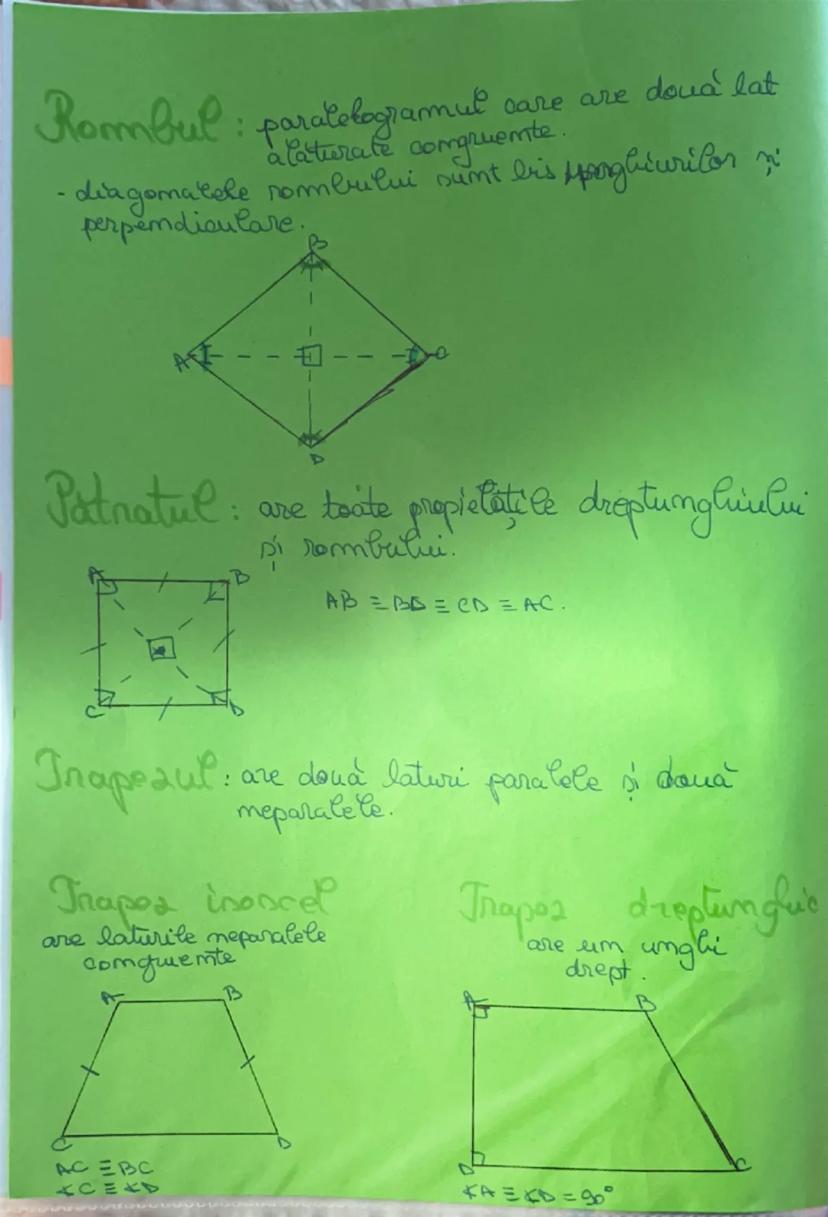 Rombul: paralelogramul care are două lat
alăturate congruente.
- diagonalele rombului sunt bis unghiurilor și
perpendiculare.
B
A
C
D
Pătratul: are toate propietățile dreptunghiului
și rombului.
A B
AB ≡ BD ≡ CD ≡ AC.
C D
Trapezul: are două laturi paralele și două
neparalele.
Trapez isoscel
are laturile neparalele
congruente
A B
C D
AC ≡ BC
∢C ≡ ∢D
Trapez dreptunghic
are un unghi
drept.
A B
D C
∢A ≡ ∢D = 90°